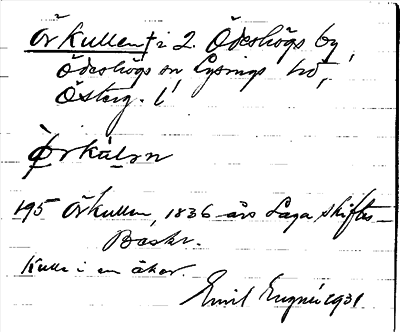 Örkullen † i 2. Ödeshögs by,
Ödeshögs sn, Lysings hd,
Österg. l.
Örkúlɘn
195 Örkullen, 1836 års Laga skiftes-
Beskr.
Kulle i en åker.
Emil Engné 1931